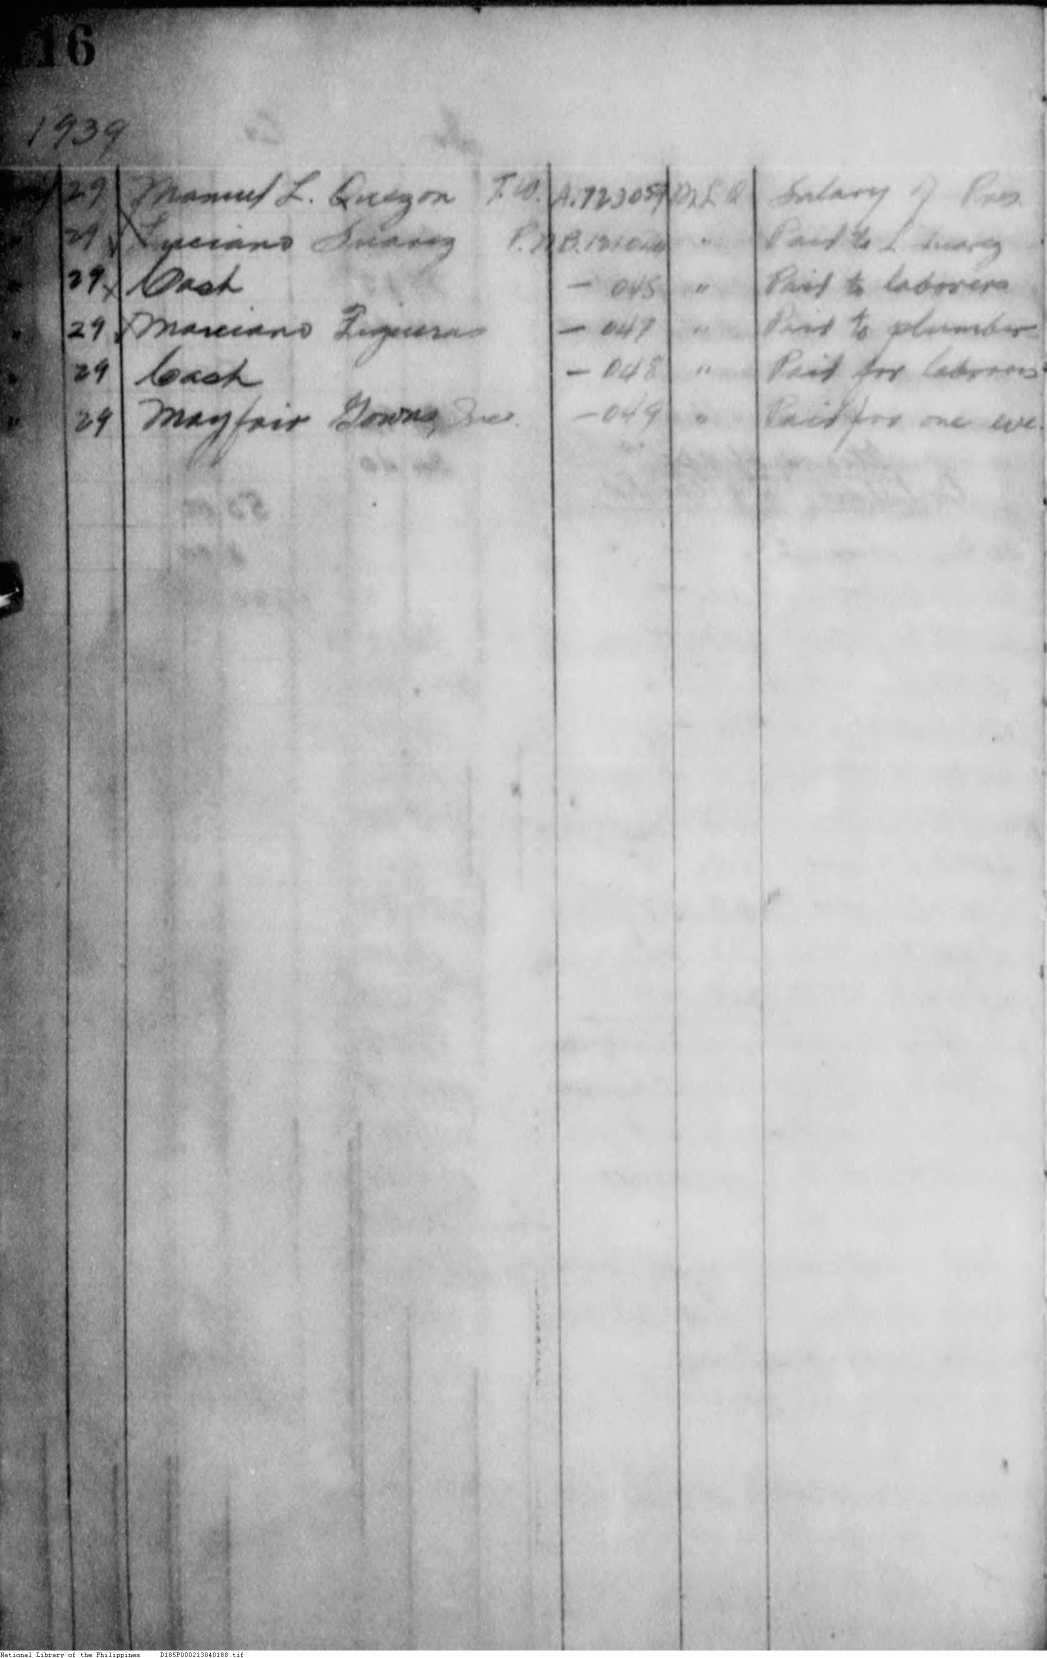 16
1939
29 Manuel L. Quezon T.W. A.723059 M.L.Q Salary of Pres
" 29 x Luciano Suarez P.N.B. " Paid to L Suarez
" 29 x Cash — 045 " Paid to laborers
" 29 x Marciano Figueras — 047 " Paid to plumber
" 29 Cash — 048 " Paid for laborers
" 29 Mayfair Gowns, Inc. — 049 " Paid for one eve.
National Library of the Philippines D185P000213040188.tif